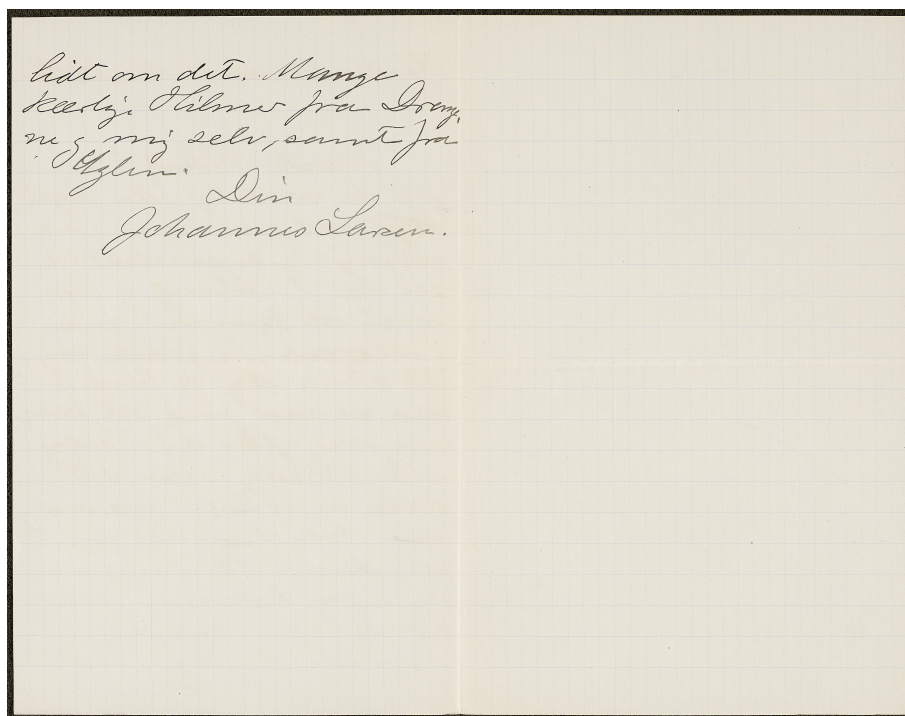 lidt om det. Mange
kærlige Hilsner fra Drenge,
ne og mig selv, samt fra
Uglen.
Din
Johannes Larsen.